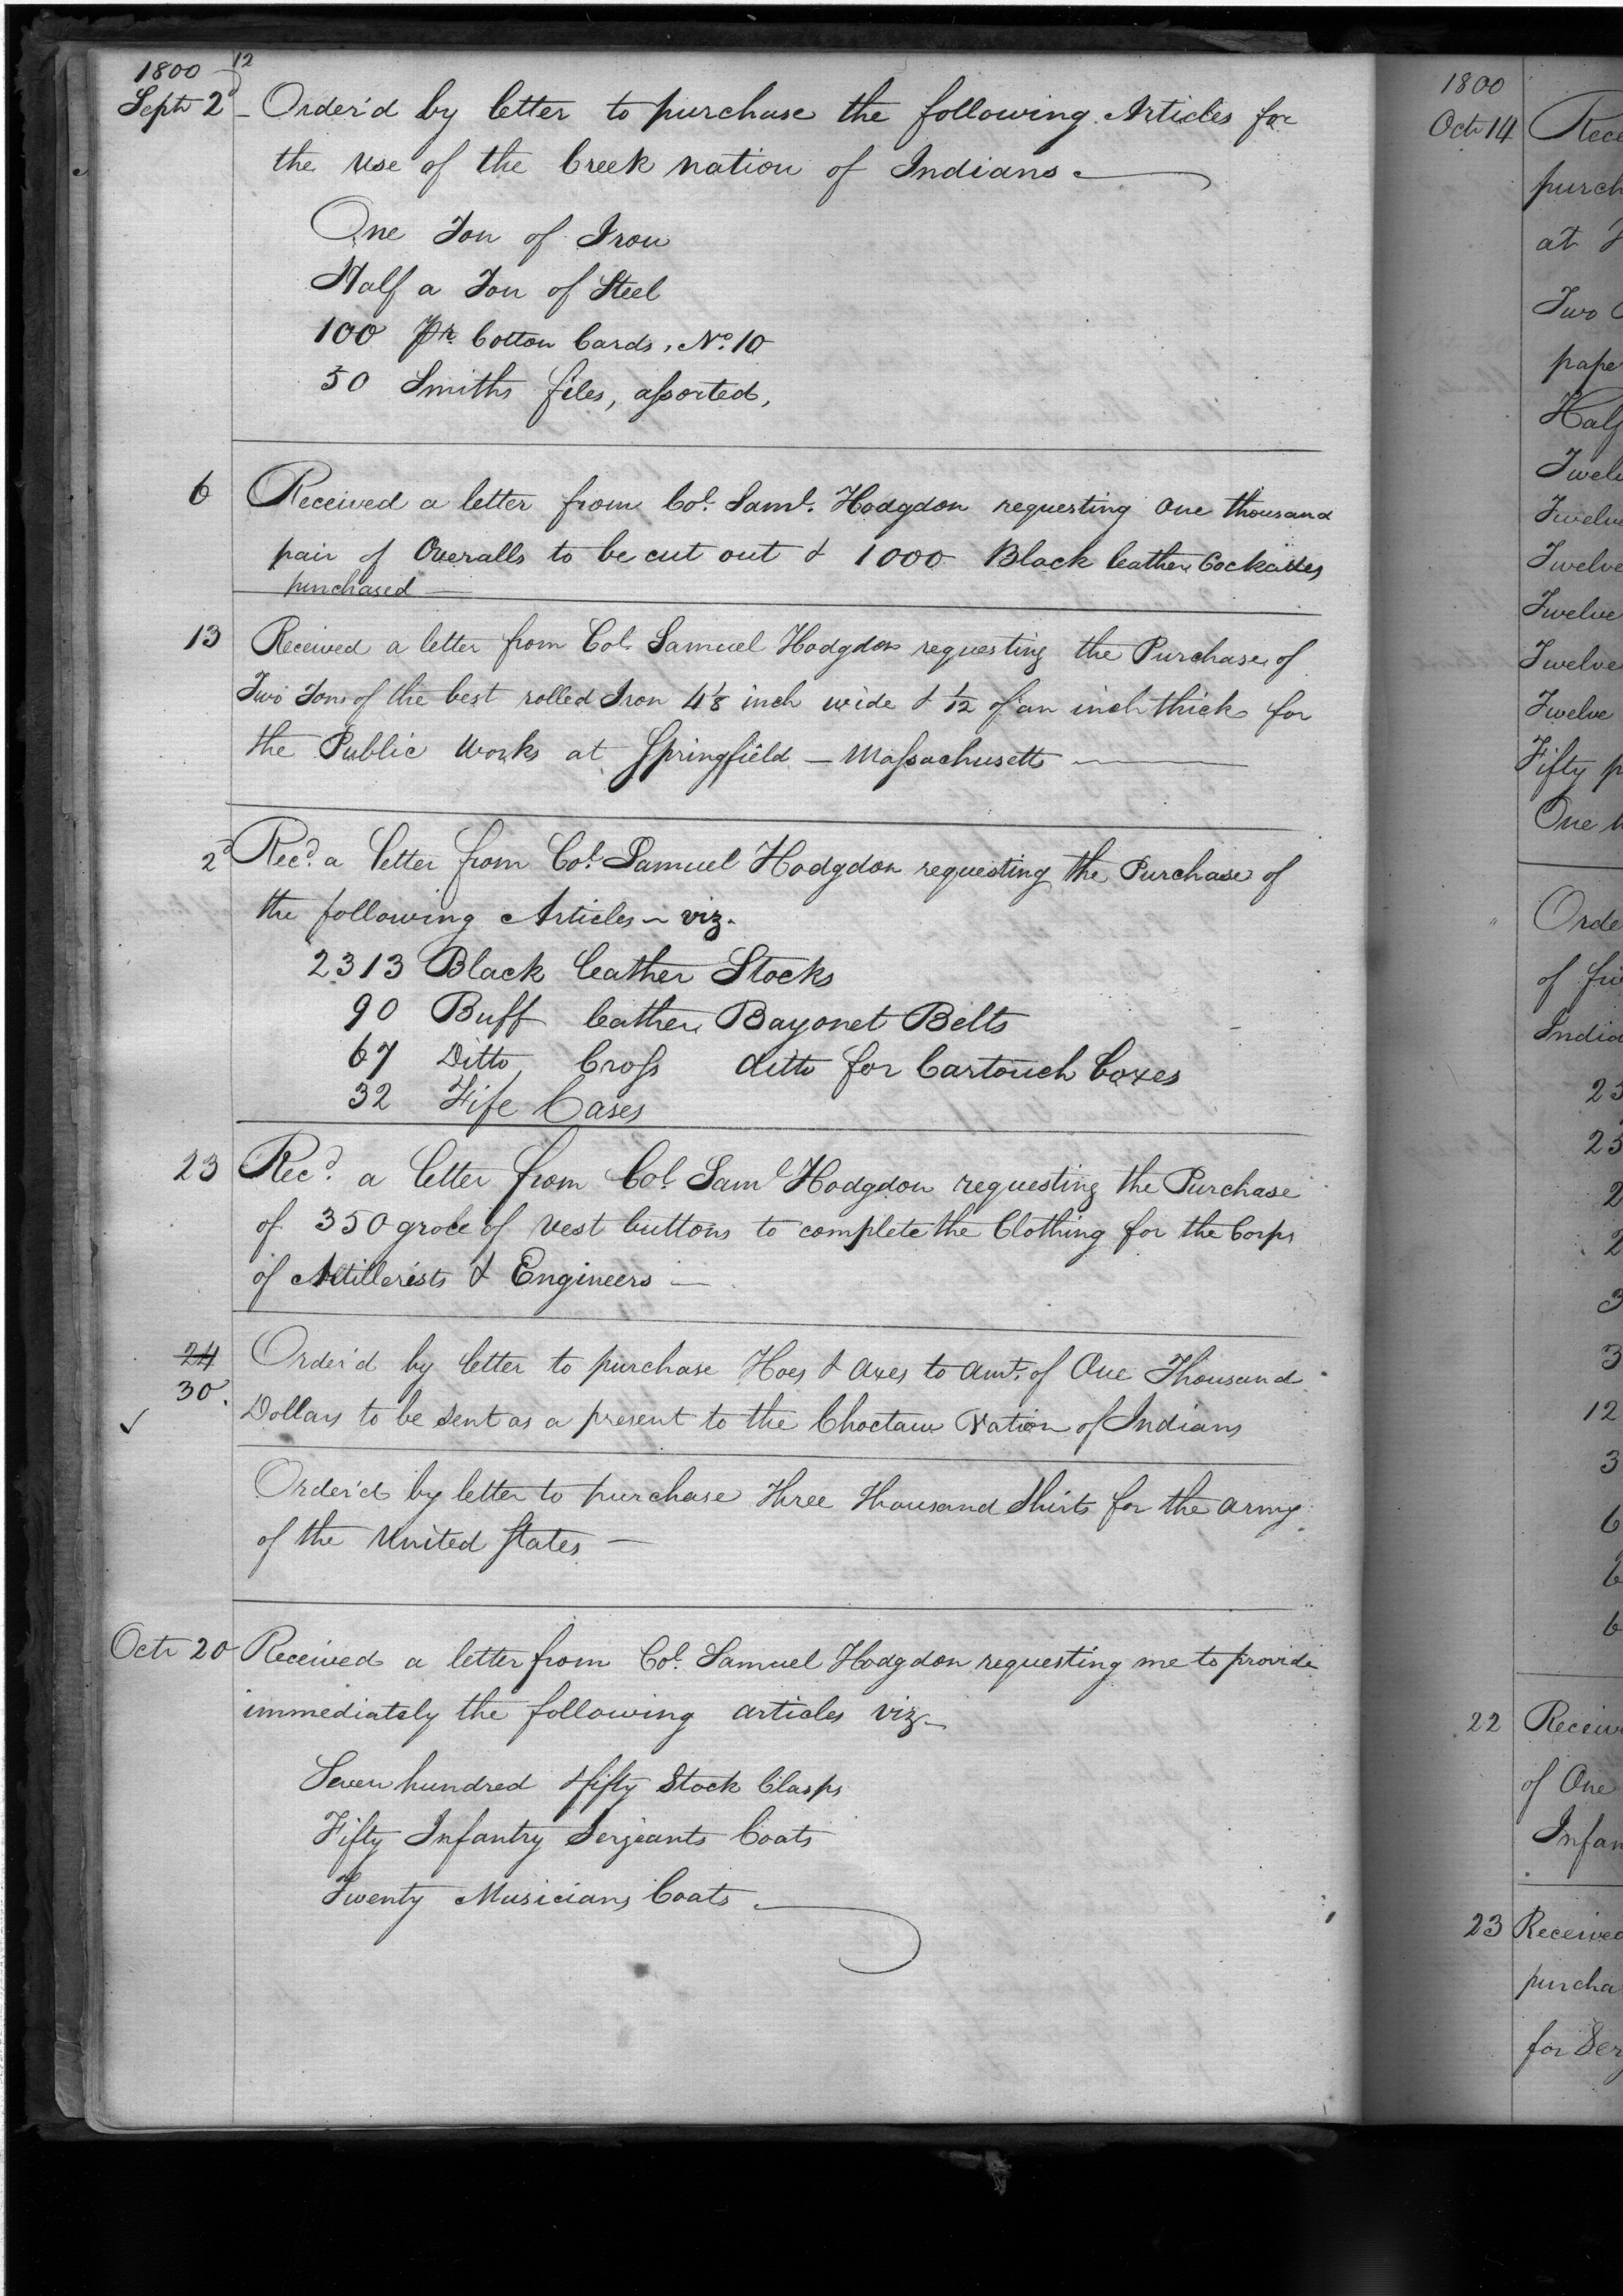 1800 12
Septr 2d Order'd by letter to purchase the following Articles for
the use of the Creek nation of Indians
One Ton of Iron
Half a Ton of Steel
100 Pr. Cotton Cards, No. 10
50 Smiths files, assorted,
6 Received a letter from Col. Saml. Hodgdon requesting One thousand
pair of Overalls to be cut out & 1000 Black leather Cockades
purchased
13 Received a letter from Col. Samuel Hodgdon requesting the Purchase of
Two Tons of the best rolled Iron 4 1/8 inch wide & 1/12 of an inch thick for
the Public Works at Springfield — Massachusetts
2d Recd. a letter from Col. Samuel Hodgdon requesting the Purchase of
the following Articles — viz.
2313 Black leather Stocks
90 Buff leather Bayonet Belts
67 Ditto Cross ditto for Cartouch boxes
32 Fife Cases
23 Recd. a letter from Col. Saml Hodgdon requesting the Purchase
of 350 groce of vest buttons to complete the Clothing for the Corps
of Artillerists & Engineers —
24
30. Order'd by letter to purchase Hoes & Axes to amt. of One Thousand
Dollars to be sent as a present to the Choctaw Nation of Indians
Order'd by letter to purchase Three thousand Shirts for the army
of the United States —
Octr 20 Received a letter from Col. Samuel Hodgdon requesting me to provide
immediately the following articles viz —
Seven hundred & fifty Stock Clasps
Fifty Infantry Serjeants Coats
Twenty Musicians Coats
1800
Octr 14
purch
at
Two
pape
Half
Twelve
Twelve
Twelve
Twelve
Twelve
Fifty p
One
Orde
of
India
23
23
2
2
3
3
12
3
6
6
6
22 Receiv
of One
Infan
23 Received
purcha
for Ser